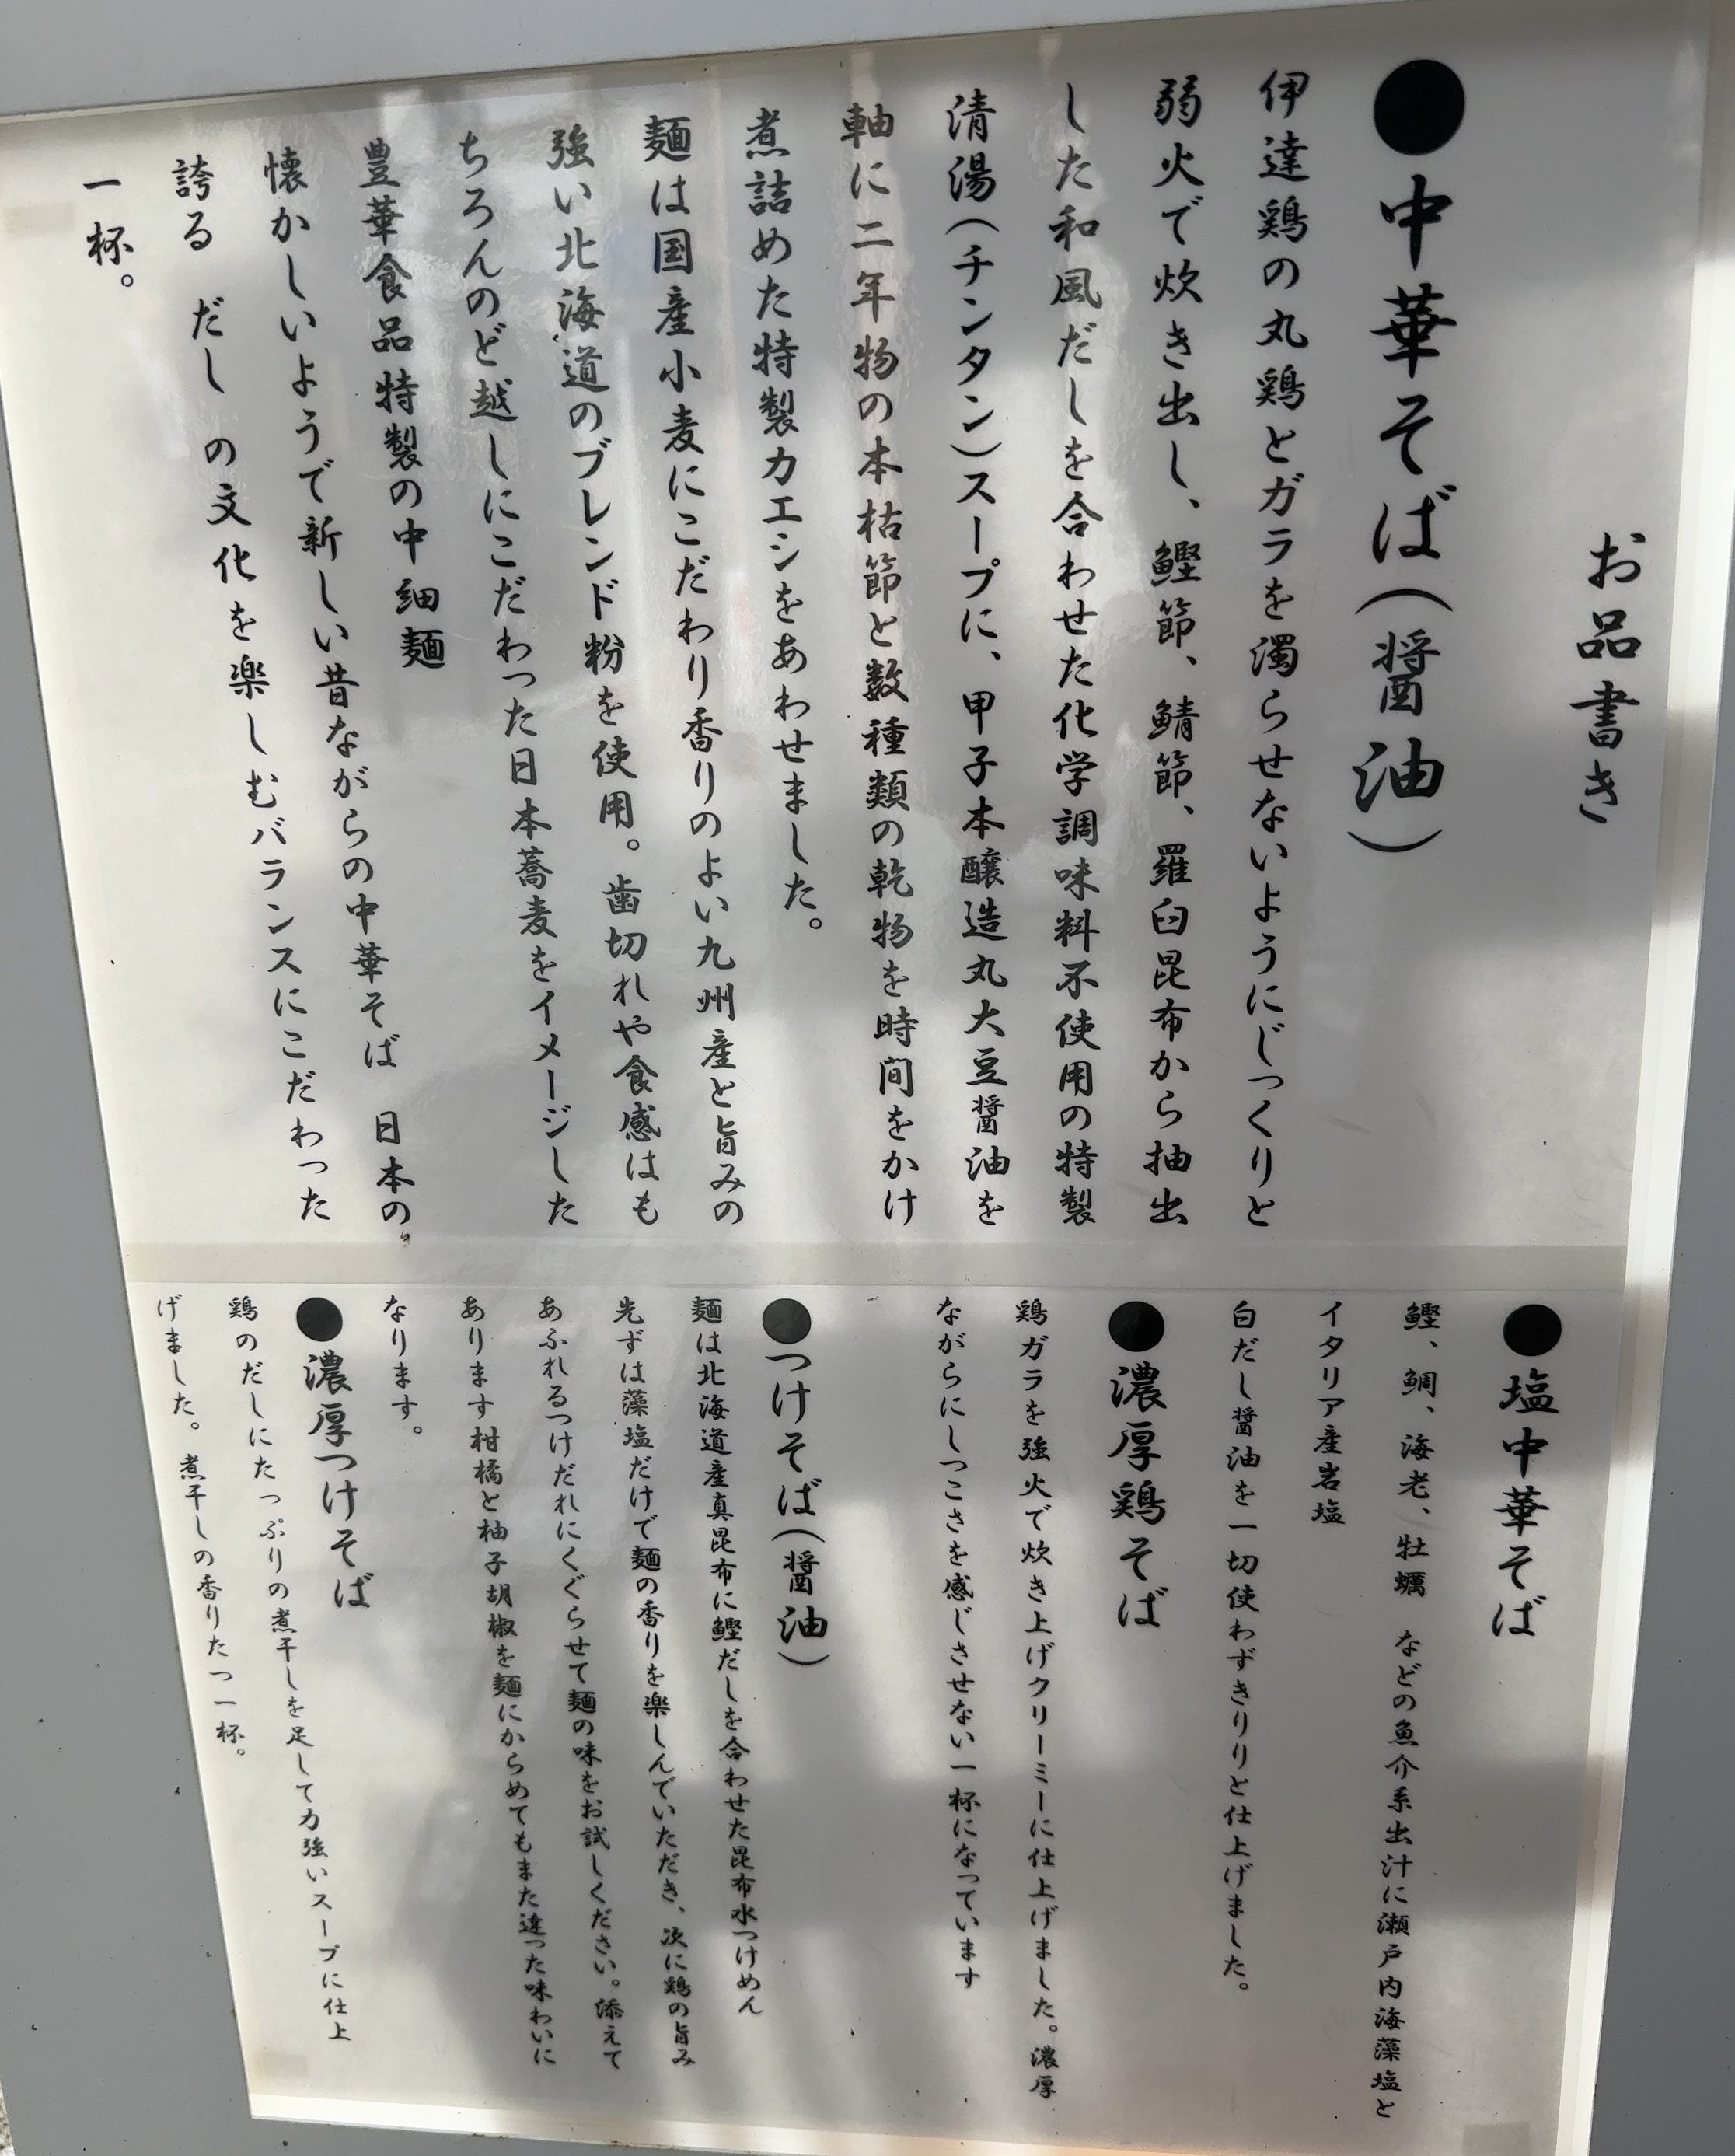 お品書き
●中華そば（醤油）
伊達鶏の丸鶏とガラを濁らせないようにじっくりと
弱火で炊き出し、鰹節、鯖節、羅臼昆布から抽出
した和風だしを合わせた化学調味料不使用の特製
清湯（チンタン）スープに、甲子本醸造丸大豆醤油を
軸に二年物の本枯節と数種類の乾物を時間をかけ
煮詰めた特製カエシをあわせました。
麺は国産小麦にこだわり香りのよい九州産と旨みの
強い北海道のブレンド粉を使用。歯切れや食感はも
ちろんのど越しにこだわった日本蕎麦をイメージした
豊華食品特製の中細麺
懐かしいようで新しい昔ながらの中華そば 日本の
誇る だし の文化を楽しむバランスにこだわった
一杯。
●塩中華そば
鰹、鯛、海老、牡蠣 などの魚介系出汁に瀬戸内海藻塩と
イタリア産岩塩
白だし醤油を一切使わずきりりと仕上げました。
●濃厚鶏そば
鶏ガラを強火で炊き上げクリーミーに仕上げました。濃厚
ながらにしつこさを感じさせない一杯になっています
●つけそば（醤油）
麺は北海道産真昆布に鰹だしを合わせた昆布水つけめん
先ずは藻塩だけで麺の香りを楽しんでいただき、次に鶏の旨み
あふれるつけだれにくぐらせて麺の味をお試しください。添えて
あります柑橘と柚子胡椒を麺にからめてもまた違った味わいに
なります。
●濃厚つけそば
鶏のだしにたっぷりの煮干しを足して力強いスープに仕上
げました。煮干しの香りたつ一杯。